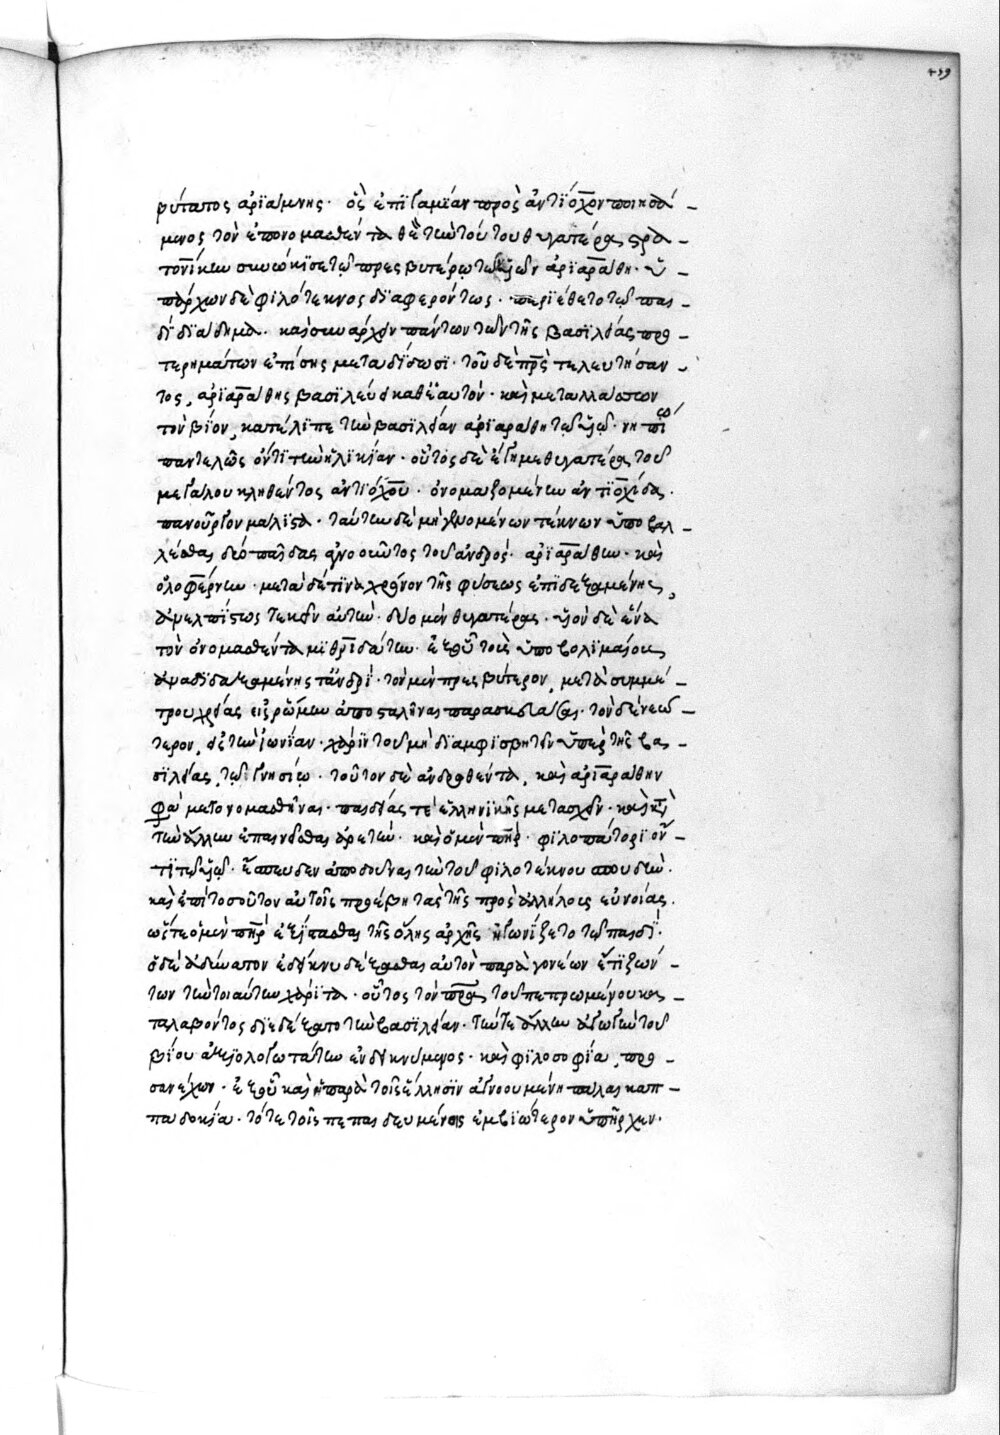 439
βύτατος ἀρϊάμνης· ὃς ἐπϊγαμΐαν πρὸς ἀντΐοχον ποιησά-
μενος τὸν ἐπονομασθέντα θεὸν τὴν τούτου θυγατέρα στρα-
τονΐκην συνώκησε τῷ πρεσβυτέρῳ τῶν υἱῶν ἀρϊαράθῃ· ὑ-
πάρχων δὲ φιλότεκνος δϊαφερόντως· περϊέθετο τῷ παι-
δὶ δϊάδημα· καὶ συνάρχειν πάντων τῶν τῆς βασιλείας προ-
τερημάτων ἐπίσης μεταδίδωσι· τοῦ δὲ πρς τελευτήσαν-
τος, ἀρϊαράθης βασϊλεύει καθ' ἑαυτὸν· καὶ μεταλλάσσων
τὸν βίον, κατέλϊπε τὴν βασιλείαν ἀρϊαράθῃ τῷ υἱῷ· νηπίῳ
παντελῶς ὄντϊ τὴν ἡλϊκίαν· οὗτος δὲ ἔγημε θυγατέρα τοῦ
μεγάλου κληθέντος ἀντϊόχου· ὀνομαζομένην ἀντϊοχίδα.
πανοῦργον μάλϊστα· ταύτην δὲ μὴ γενομένων τέκνων ὑποβαλ-
λέσθαι δύο παῖδας ἀγνοοῦντος τοῦ ἀνδρός· ἀρϊαράθην· καὶ
ὀλοφέρνην· μετὰ δέ τϊνα χρόνον τῆς φύσεως ἐπϊδεξαμένης,
ἀνελπΐστως τεκεῖν αὐτὴν· δύο μὲν θυγατέρας· υἱὸν δὲ ἕνα
τὸν ὀνομασθέντα μϊθρϊδάτην· ἐξ οὗ τοὺς ὑποβολϊμαίους
ἀναδϊδαξαμένης τἀνδρὶ· τὸν μὲν πρεσβύτερον, μετὰ συμμέ-
τρου χρείας εἰς ῥώμην ἀποσταλῆναι παρασκευάσαι· τὸν δὲ νεώ-
τερον, εἰς τὴν ἰωνίαν· χάρϊν τοῦ μὴ δϊαμφισβητεῖν ὑπὲρ τῆς βα-
σϊλείας, τῷ γνησίῳ· τοῦτον δὲ ἀνδρωθέντα, καὶ ἀρϊαράθην
φασὶ μετονομασθῆναι· παιδείας τὲ ἑλληνϊκῆς μετασχεῖν· καὶ κτὰ
τὴν ἄλλην ἐπαινεῖσθαι ἀρετὴν· καὶ ὁ μὲν πὴρ· φϊλοπάτορϊ ὄν-
τϊ τῷ υἱῷ· ἔσπευδεν ἀποδοῦναι τὴν τοῦ φϊλοτέκνου σπουδὴν·
καὶ ἐπὶ τοσοῦτον αὐτοῖς προέβη τὰ τῆς πρὸς ἀλλήλους εὐνοίας.
ὥστε ὁ μὲν πὴρ ἐξίστασθαι τῆς ὅλης ἀρχῆς ἠγωνΐζετο τῷ παιδΐ·
ὁ δὲ ἀδύνατον ἐδείκνυ δέξασθαι αὐτὸν παρὰ γονέων ἔτϊ ζών-
των τὴν τοιαύτην χάρϊτα· οὗτος τὸν πρα τοῦ πεπρωμένου κα-
ταλαβόντος δϊεδέξατο τὴν βασϊλείαν· τήν τε ἄλλην ἀγωγὴν τοῦ
βίου ἀξϊολογωτάτην ἐνδεικνύμενος· καὶ φϊλοσοφίᾳ, προ-
σανέχων· ἐξ οὗ καὶ ἡ παρὰ τοῖς ἕλλησϊν ἀγνοουμένη πάλαι καπ-
παδοκία· τότε τοῖς πεπαιδευμένοις ἐμβϊώτερον ὑπῆρχεν·